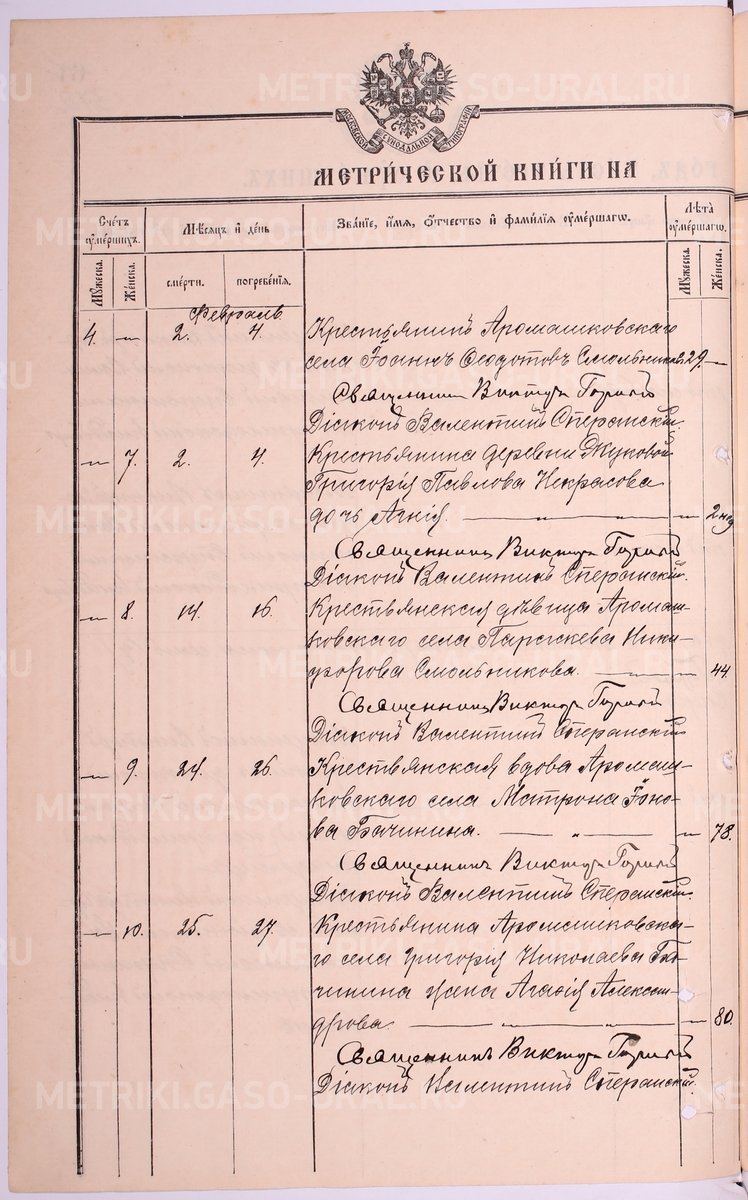 МОСКОВСКОЙ СѴНОДАЛЬНОЙ ТИПОГРАФІИ
МЕТРИ́ЧЕСКОЙ КНИ́ГИ НА
Сче́тъ ᲂу҆ме́ршихъ.
Мѣ́сяцъ и҆ де́нь
Зва́ніе, и҆́мя, ѻ҆́тчество и҆ фами́лія ᲂу҆ме́ршагѡ.
Лѣ́та ᲂу҆ме́ршагѡ.
Мꙋ́жеска.
Же́нска.
сме́рти.
погребе́нія.
Мꙋ́жеска.
Же́нска.
Февраль
4. — 2. 4. Крестьянинъ Аромашковскаго
села Іоаннъ Ѳеодотовъ Смольниковъ 29. —
Священникъ Викторъ
Діаконъ Валентинъ Сперанскій.
— 7. 2. 4. Крестьянина деревни Жуковой
Григорія Павлова Некрасова
дочь Агнія. — „ — „ — 2 нед
Священникъ Викторъ
Діаконъ Валентинъ Сперанскій.
— 8. 14. 16. Крестьянская дѣвица Аромаш-
ковскаго села Параскева Ники-
форова Смольникова. — — 44
Священникъ Викторъ
Діаконъ Валентинъ Сперанскій
— 9. 24. 26. Крестьянская вдова Аромаш-
ковскаго села Матрона Іоно-
ва Бачинина. — „ — — 78.
Священникъ Викторъ
Діаконъ Валентинъ Сперанскій.
— 10. 25. 27. Крестьянина Аромашковска-
го села Григорія Николаева Ба-
чинина жена Агафія Алексан-
дрова. — „ — „ — — 80.
Священникъ Викторъ
Діаконъ Валентинъ Сперанскій.
METRIKI.GASO-URAL.RU